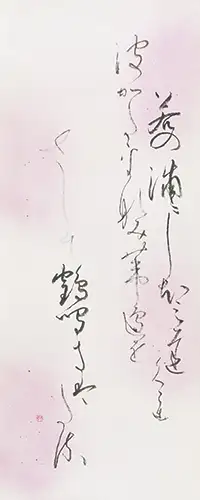 若の浦にしほみちくれ
波かたをなみ葦邊を
さして鶴鳴きわたる